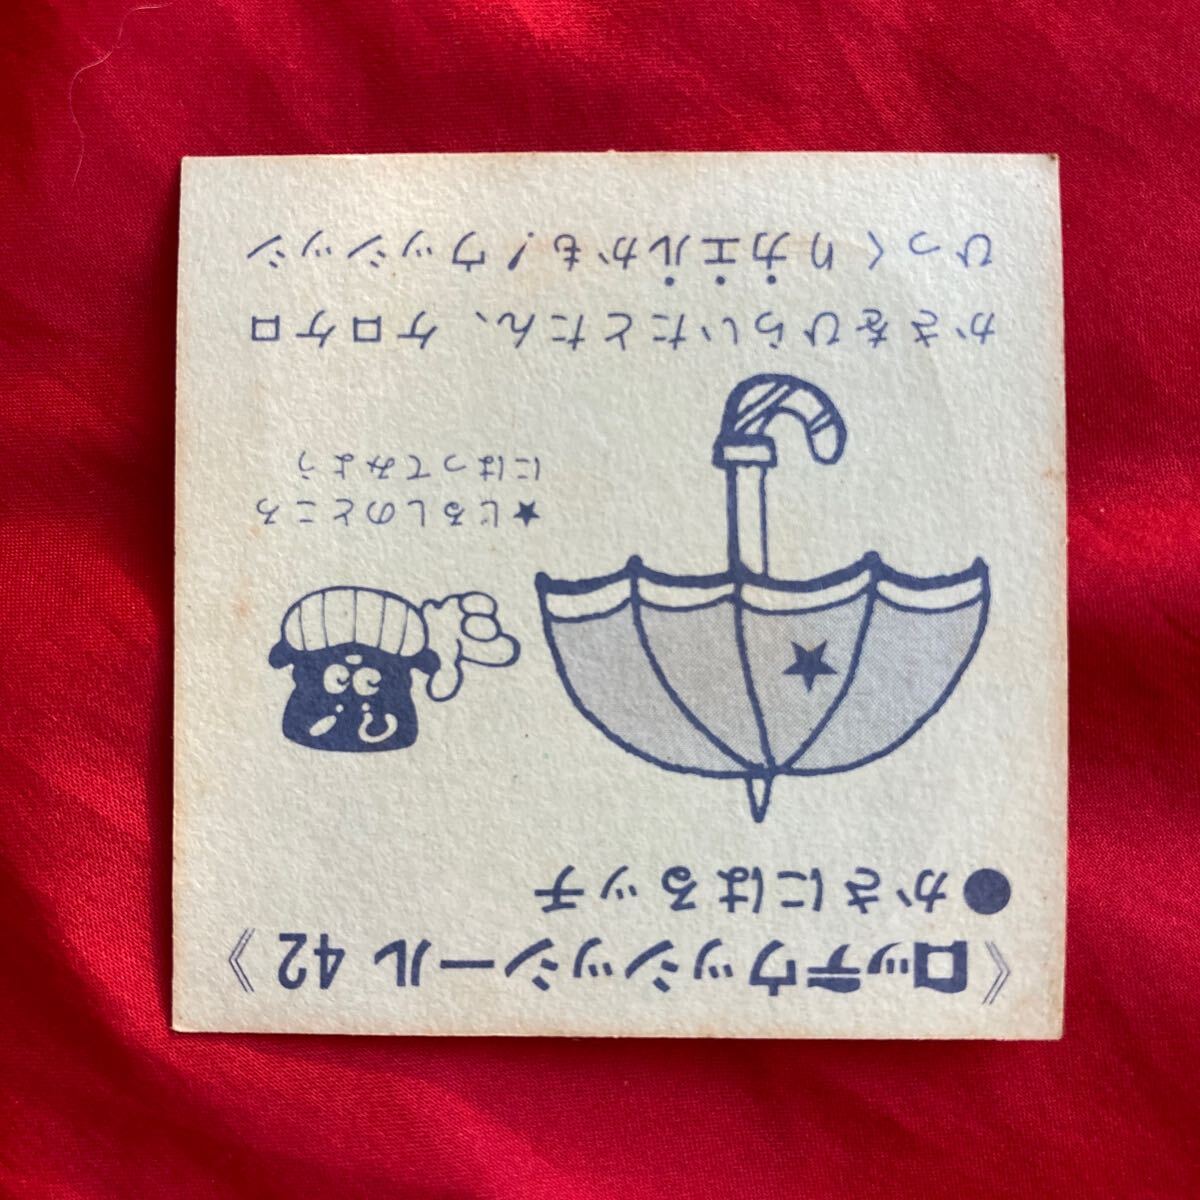 《ロッテウッシッシール 42》
●かさにはるッチ
★じるしのところ
にはってみよう
かさをひらいたとたん、ケロケロ
ひっくりカエルかも!ウッシッシ